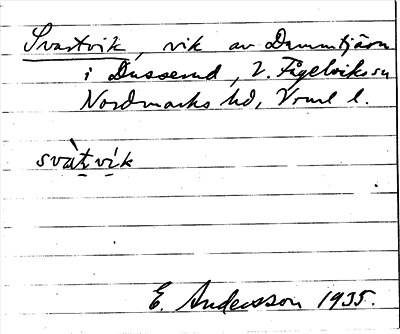 Svartvik, vik av Dammtjärn
i Dusserud, V. Fågelviks sn
Nordmarks hd, Vrml l.
svàt̠vi̠k
E. Andersson 1935.